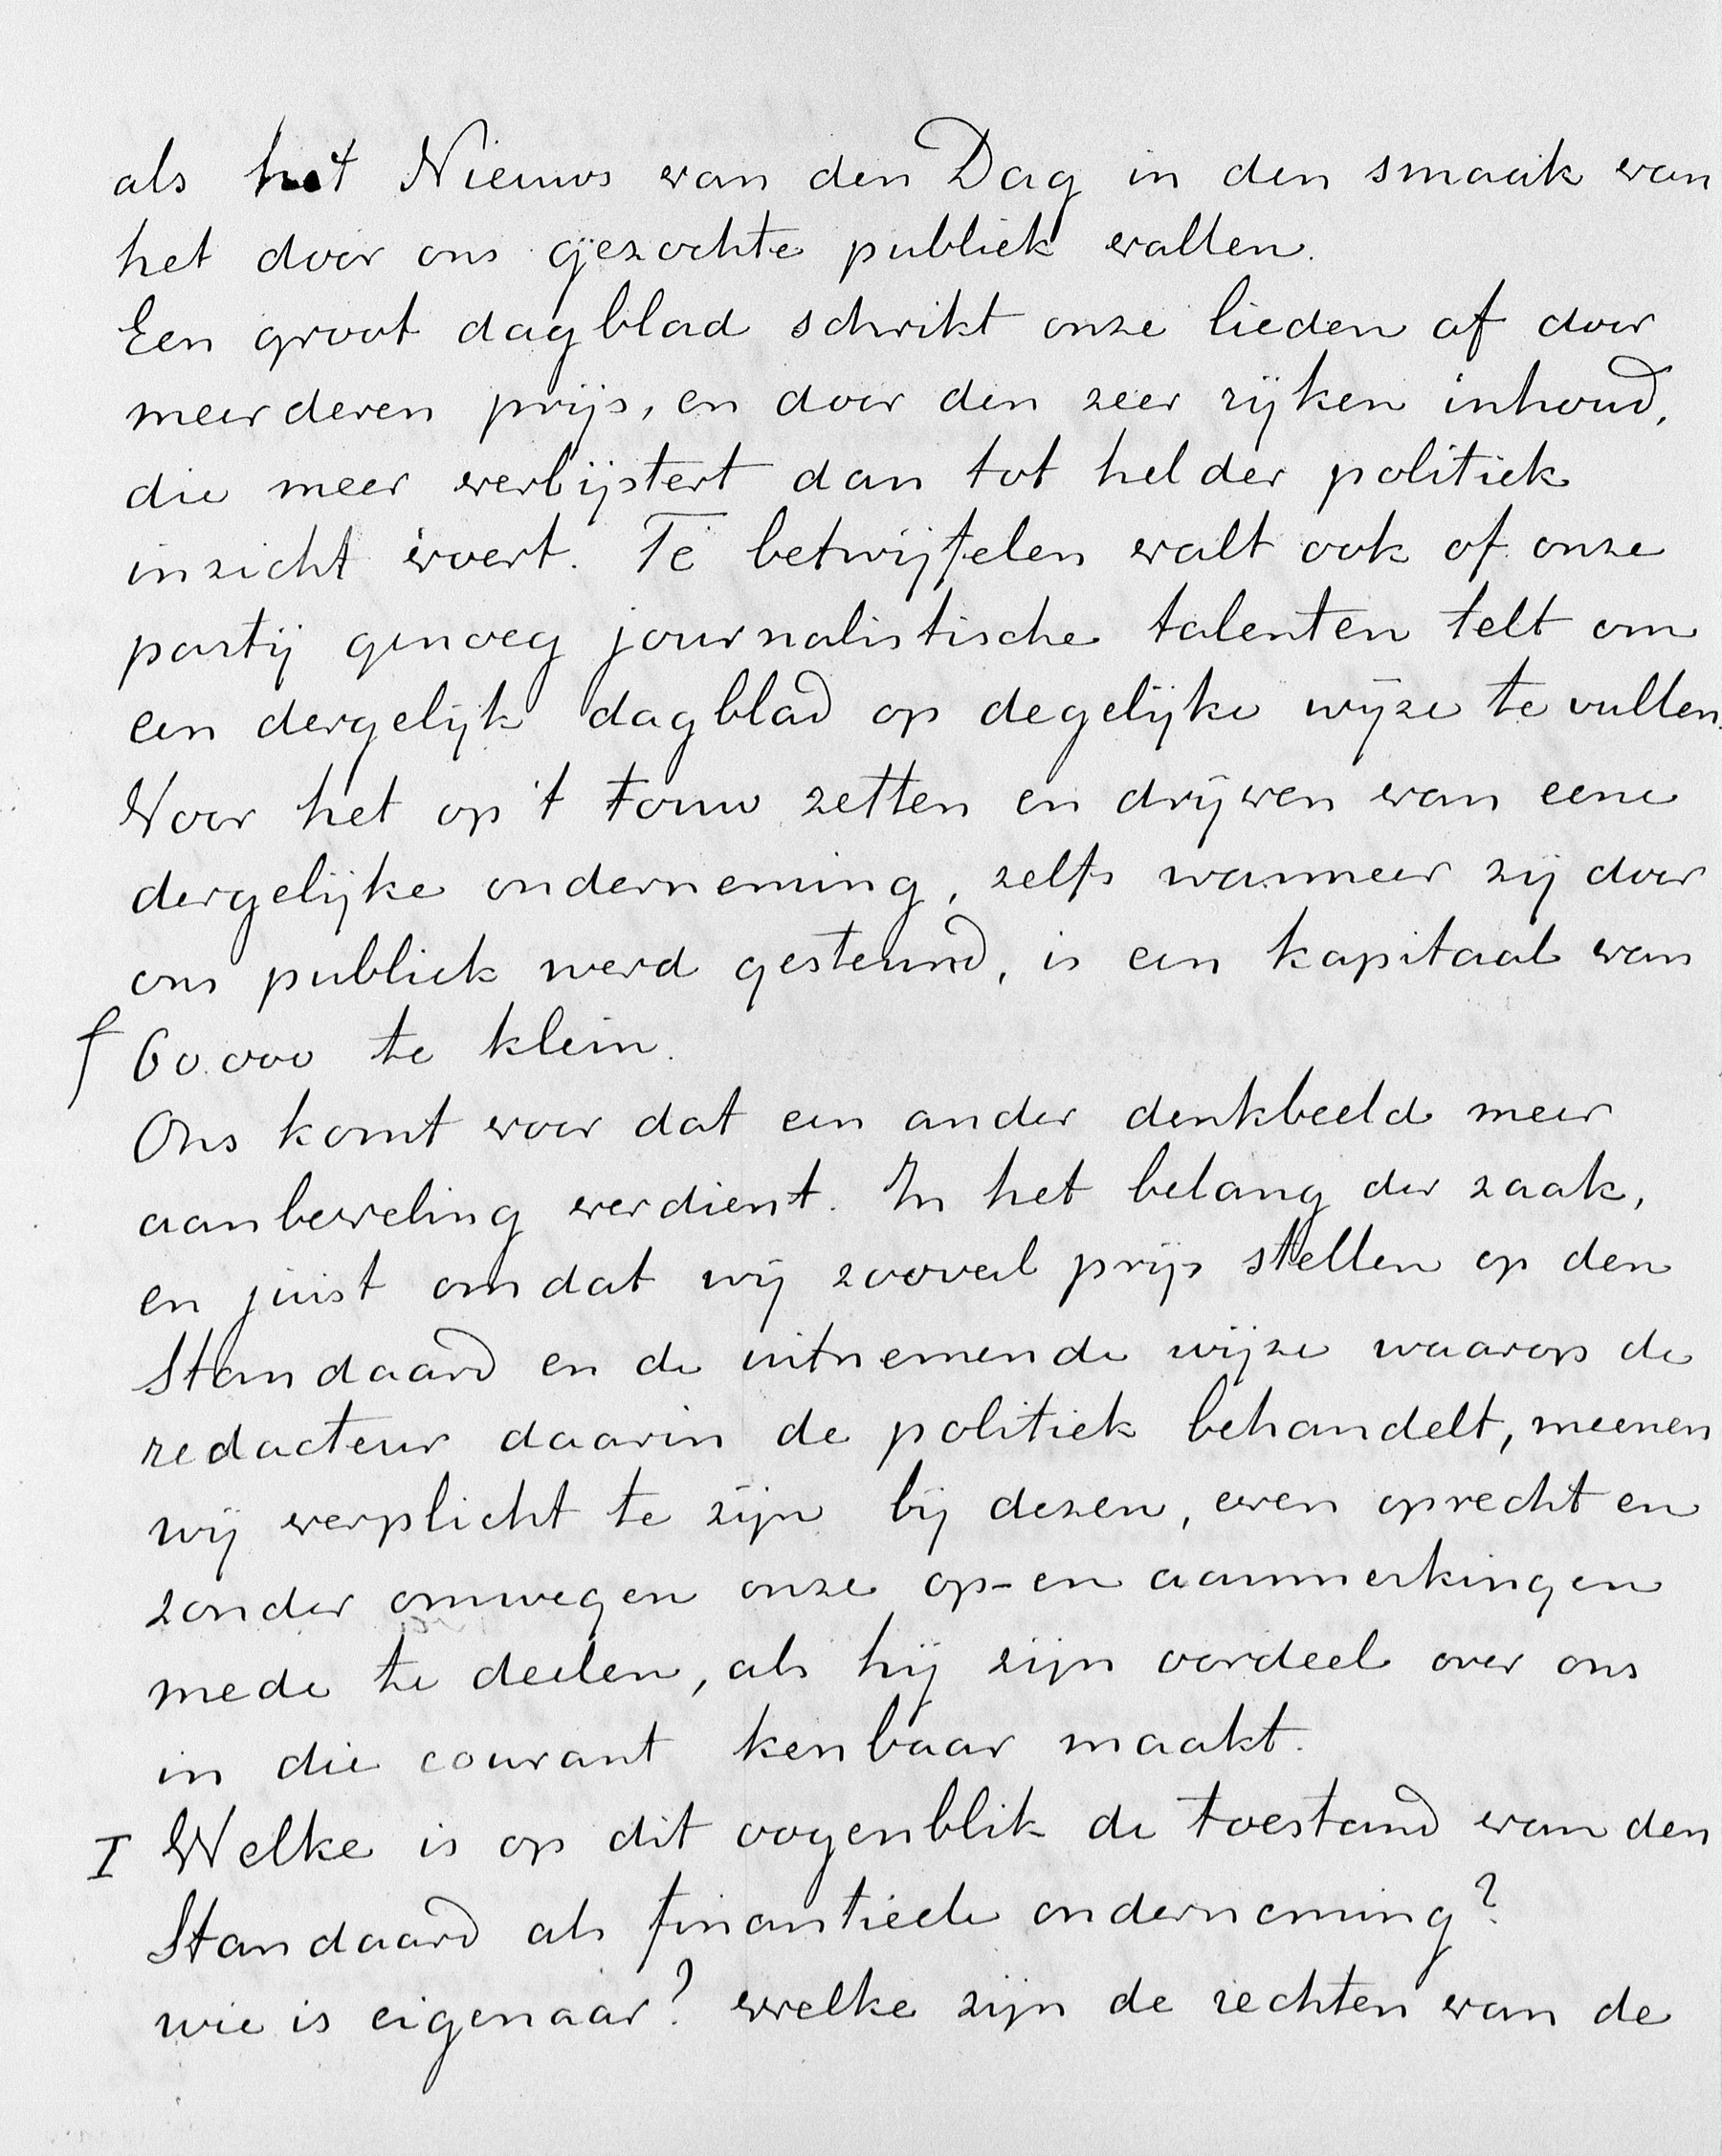 als het Nieuws van den Dag in den smaak van
het door ons gezochte publiek vallen.
Een groot dagblad schrikt onze lieden af door
meerderen prijs, en door den zeer rijken inhoud,
die meer verbijstert dan tot helder politiek
inzicht voert. Te betwijfelen valt ook of onze
partij genoeg journalistische talenten telt om
een dergelijk dagblad op degelijke wijze te vullen.
Voor het op 't touw zetten en drijven van eene
dergelijke onderneming, zelfs wanneer zij door
ons publiek werd gesteund, is een kapitaal van
ƒ 60.000 te klein.
Ons komt voor dat een ander denkbeeld meer
aanbeveling verdient. In het belang der zaak,
en juist omdat wij zooveel prijs stellen op den
Standaard en de uitnemende wijze waarop de
redacteur daarin de politiek behandelt, meenen
wij verplicht te zijn bij dezen, even oprecht en
zonder omwegen onze op- en aanmerkingen
mede te deelen, als hij zijn oordeel over ons
in die courant kenbaar maakt.
I Welke is op dit oogenblik de toestand van den
Standaard als finantieele onderneming?
wie is eigenaar? welke zijn de rechten van de